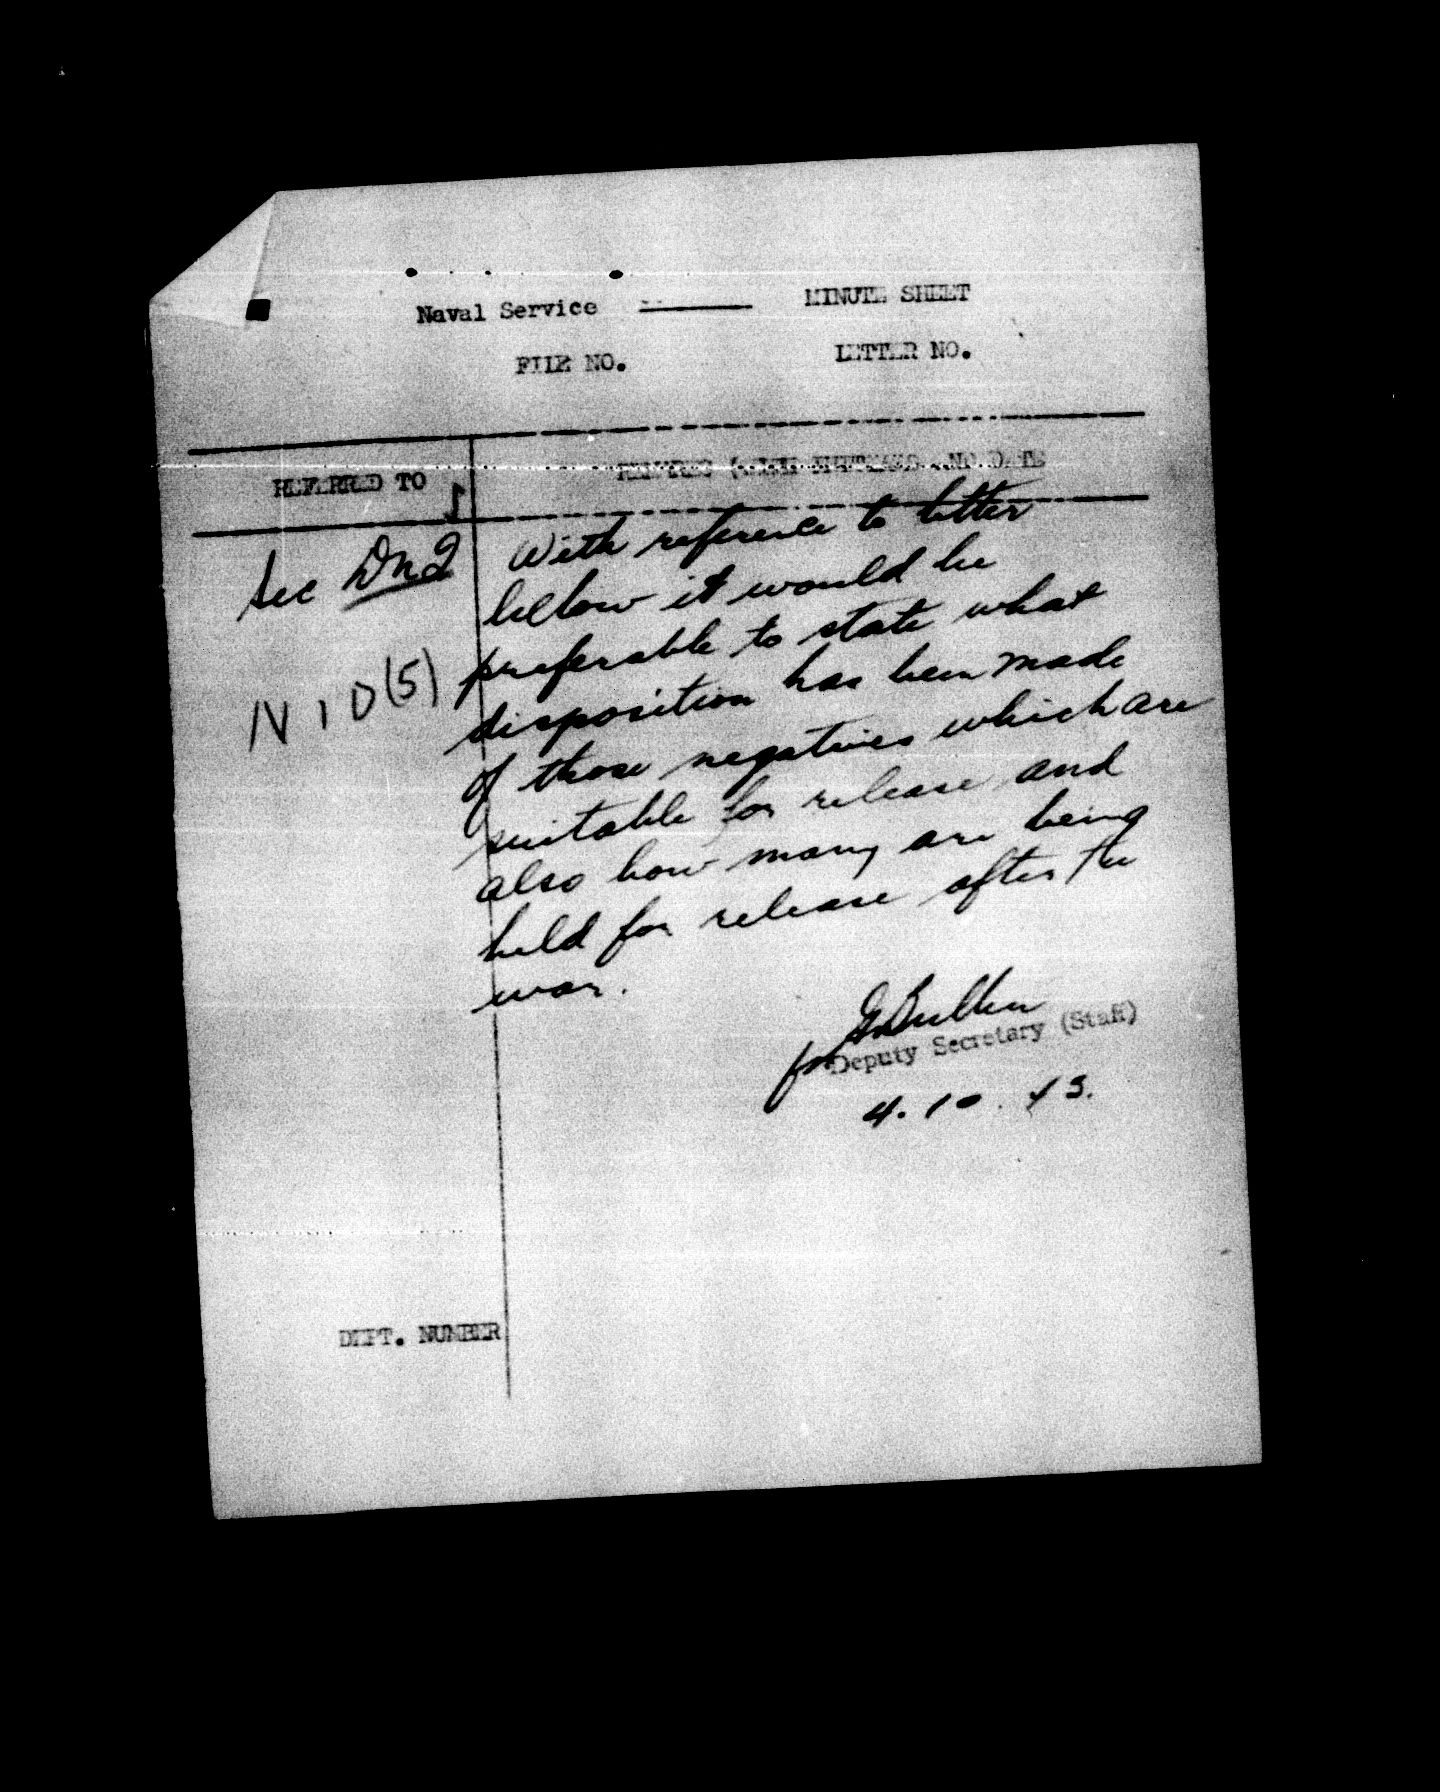 Naval Service ——— MINUTE SHEET
FILE NO. LETTER NO.
REFERRED TO REMARKS
Sec DNI With reference to letter
below it would be
preferable to state what
N I D (5) disposition has been made
of those negatives which are
suitable for release and
also how many are being
held for release after the
war.
for
Deputy Secretary (Staff)
4. 10. 43.
DEPT. NUMBER